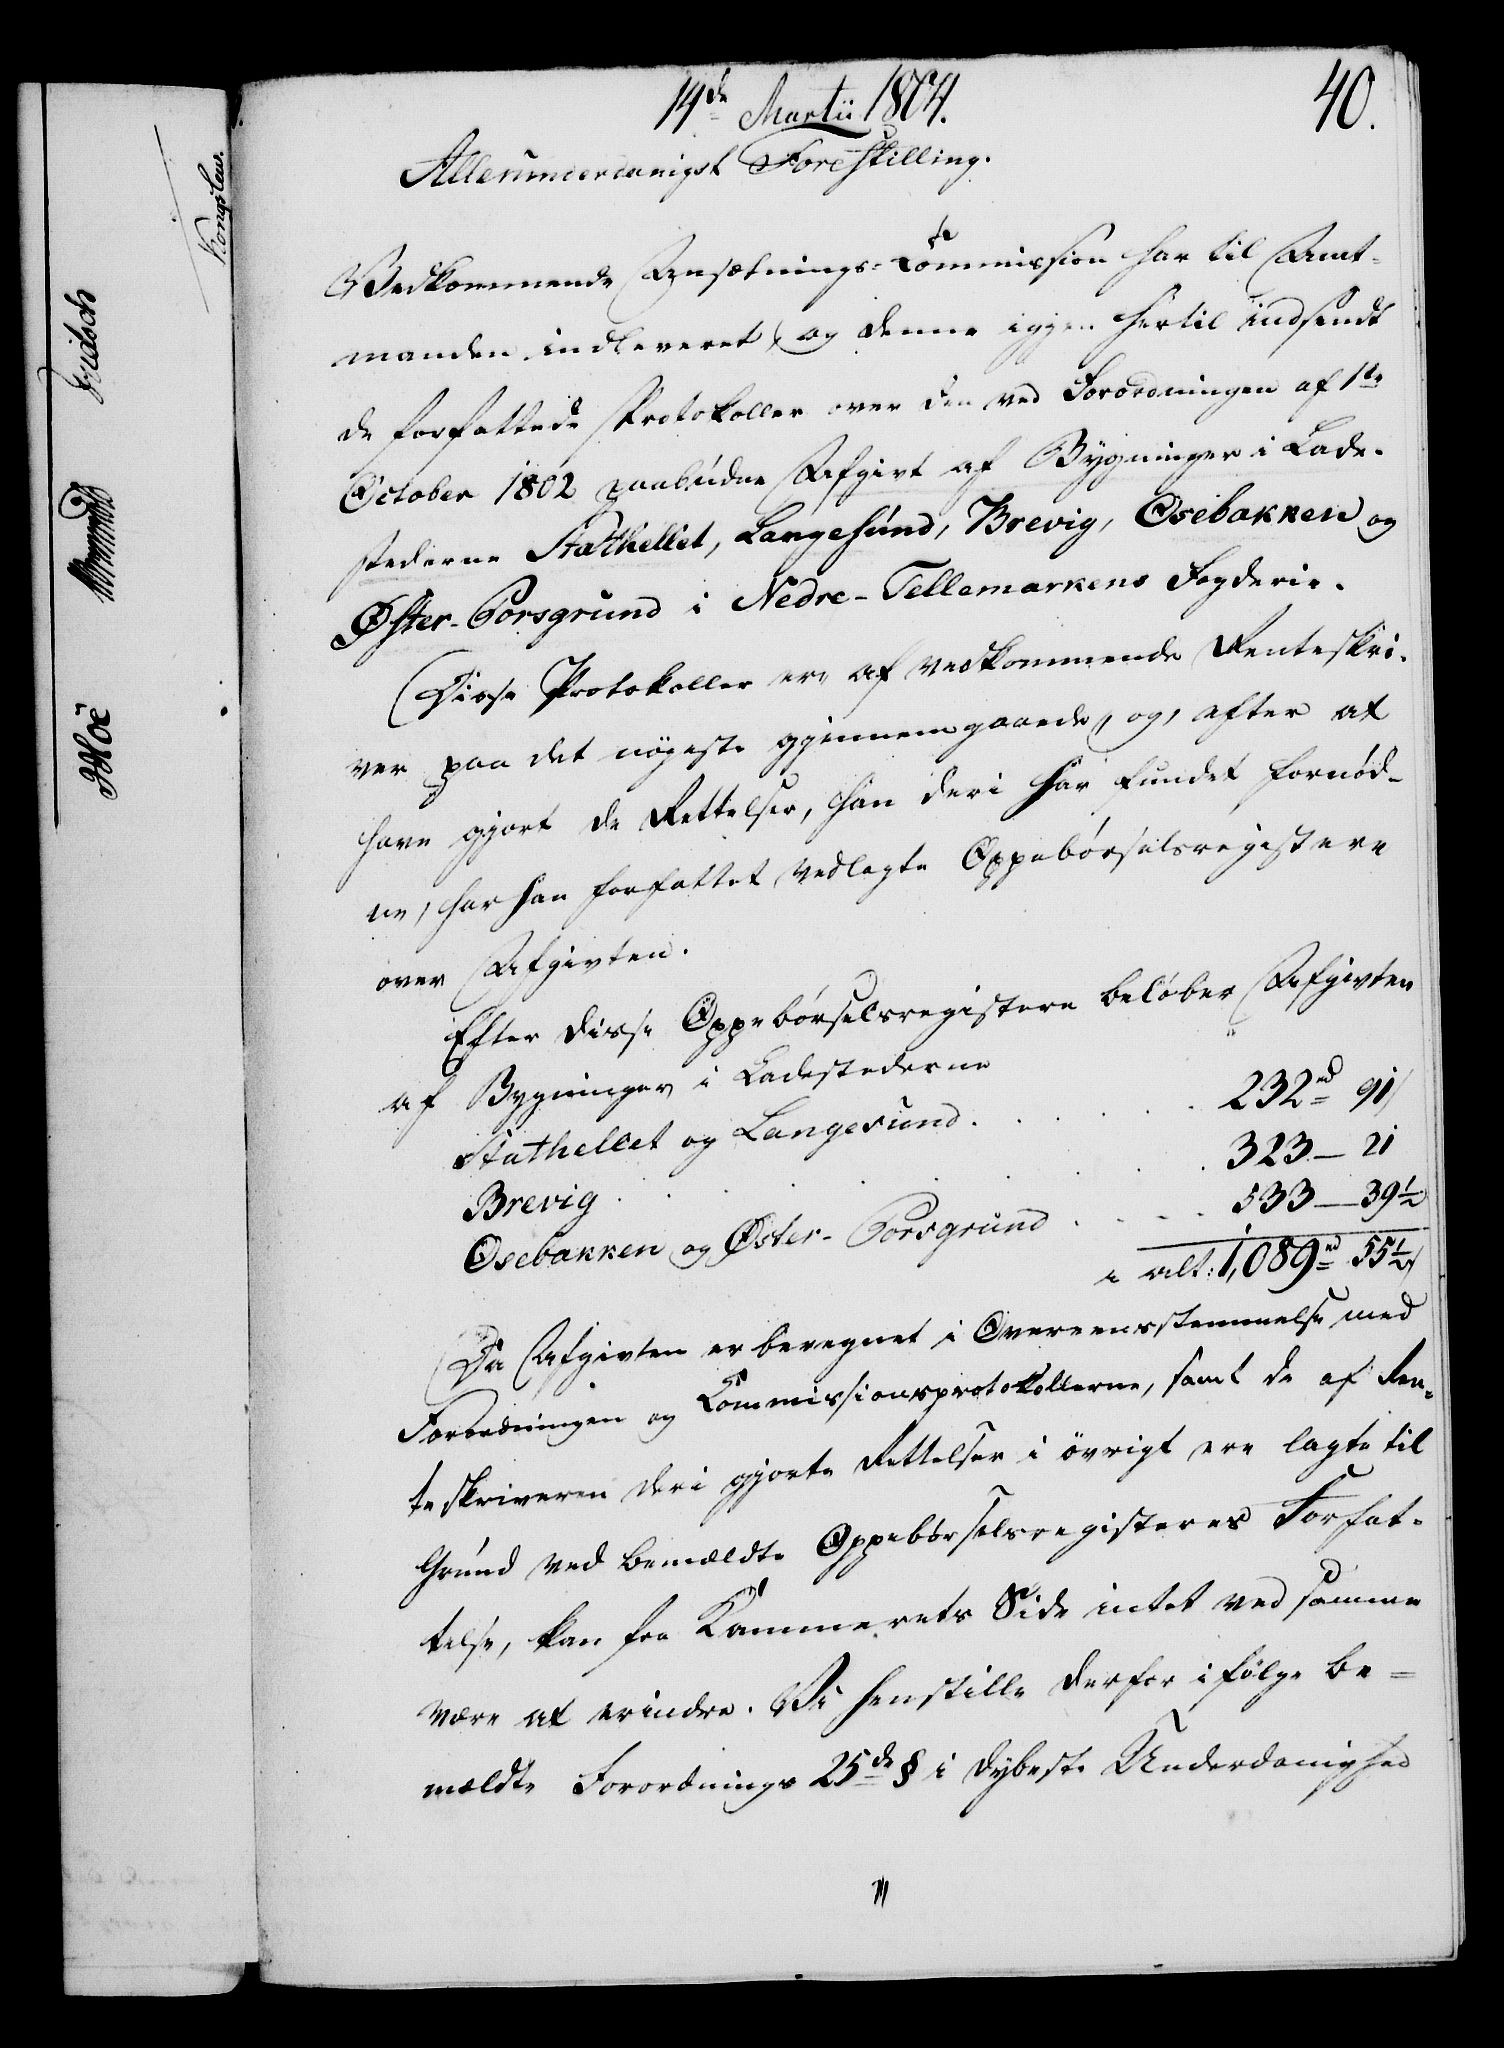 14de Martii 1804.
40.
Allerunderdanigst Forestilling.
Vedkommende Ansætnings-Commission har til Amt-
manden indleveret, og denne igjen hertil indsendt
de forfattede Protokoller over den ved Forordningen af 1ste
October 1802 paabudne Afgivt af Bygninger i Lade-
stederne Stathellet, Langesund, Brevig, Osebakken og
Øster-Porsgrund i Nedre-Tellemarkens Fogderie.
Disse Protokoller ere af vedkommende Renteskri-
ver paa det nøjeste gjennemgaaede, og, efter at
have gjort de Rettelser, han deri har fundet fornød-
ne, har han forfattet vedlagte Oppebørselsregistere
over Afgivten.
Efter disse Oppebørselsregistere beløber Afgivten
af Bygninger i Ladestederne
Stathellet og Langesund . . . . . 232rd 91s
Brevig . . . . . . . 323 — 21
Osebakken og Øster-Porsgrund . . . . 533 — 39½
i alt: 1,089rd 55½s
Da Afgivten er beregnet i Overeensstemmelse med
Forordningen og Commissionsprotokollerne, samt de af Ren-
teskriveren deri gjorte Rettelser i øvrigt ere lagte til
Grund ved bemældte Oppebørselsregisteres Forfat-
telse, kan fra Kammerets Side intet ved samme
være at erindre. Vi henstille derfor ifølge be-
mældte Forordnings 25de § i dybeste Underdanighed
Kongslew.
Fridsch
Møe